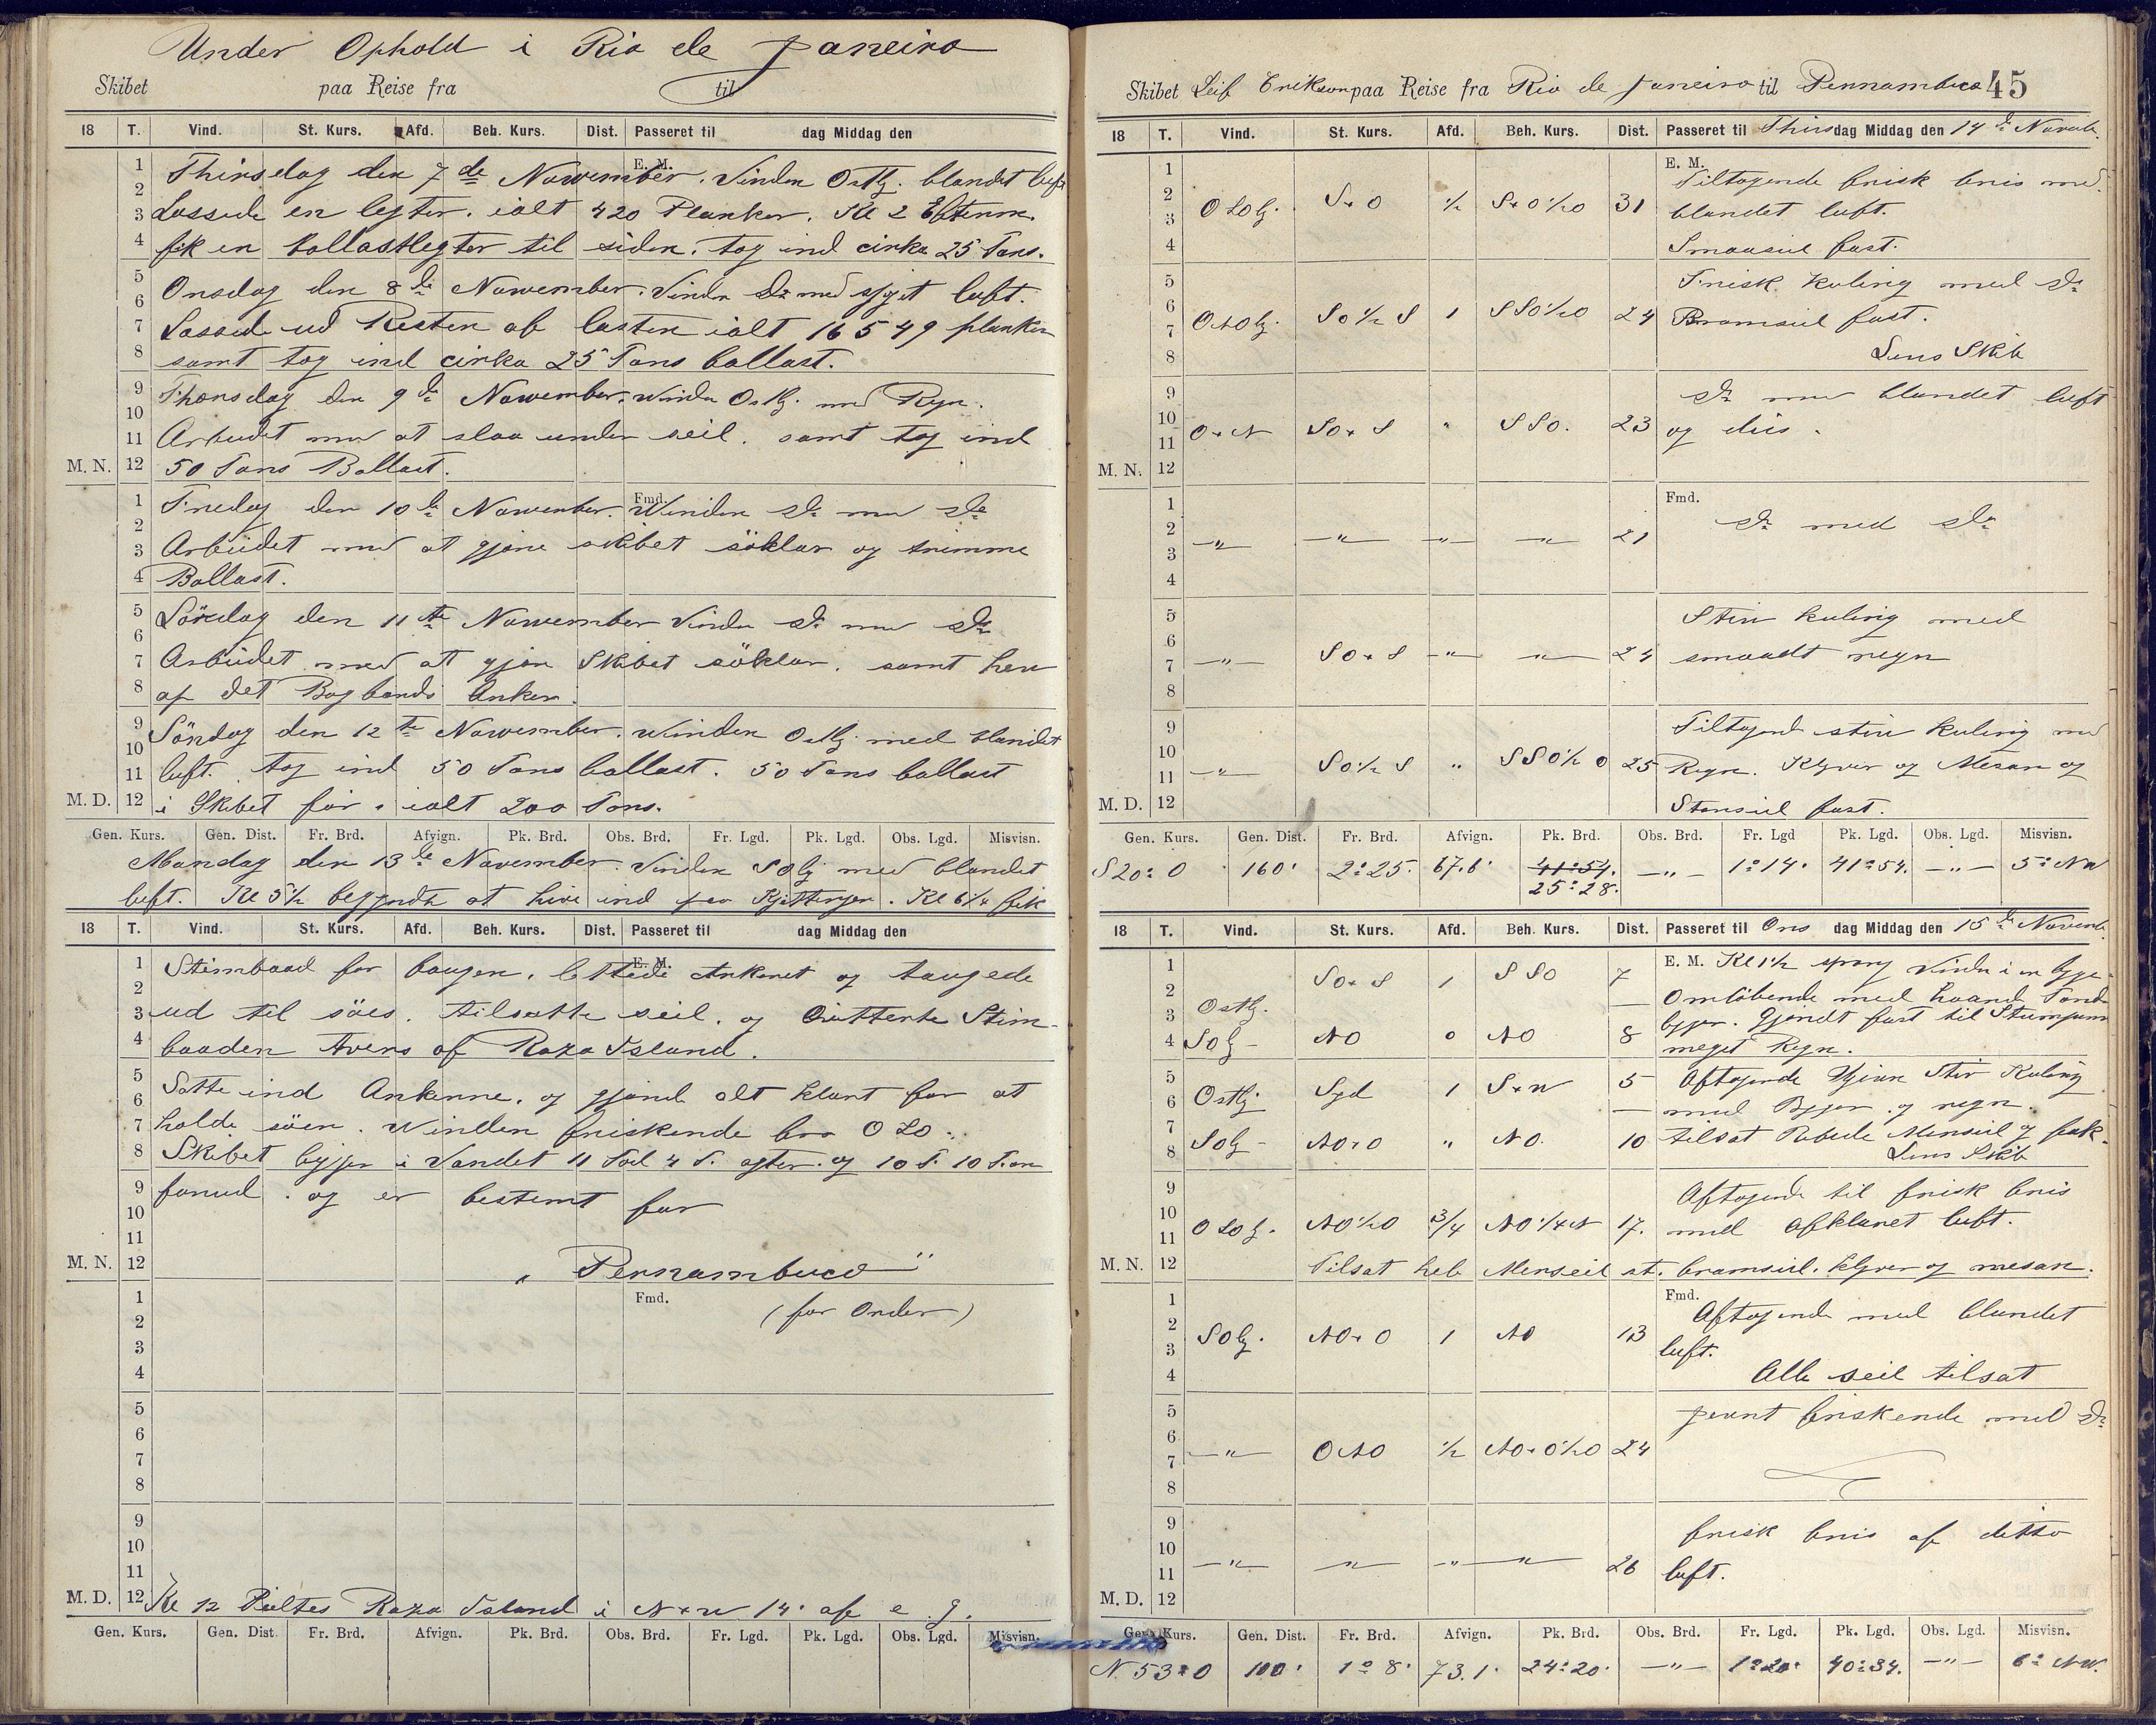 Under Ophold i Rio de Janeiro
Skibet paa Reise fra til
18 T. Vind. St. Kurs. Afd. Beh. Kurs. Dist. Passeret til dag Middag den
E. M.
Thirsdag den 7de Nowember. Vinden Ostlg. blandet luft
Lossede en legter. ialt 420 Planker. Kl 2 Efterm.
fik en ballastlegter til siden. tog ind cirka 25 Tons.
Onsdag den 8de Nowember. Vinden do med luft.
Lossede ud Resten af lasten ialt 16549 planker
samt tog ind cirka 25 Tons ballast.
Thorsdag den 9de Nowember. winden Ostlg. med Regn.
Arbeidet med at slaa under seil. samt tog ind
M. N. 50 Tons Ballast.
Fmd.
Fredag den 10de Nowember. Winden do med do
Arbeidet med at gjøre skibet söklar og trimme
Ballast.
Lördag den 11te Nowember Vinden do med do
Arbeidet med at gjøre Skibet söklar. samt
af det Bagbords Anker.
Söndag den 12te Nowember. Winden Ostlg. med blandet
luft. tog ind 50 Tons ballast. 50 Tons ballast
M. D. i Skibet för. ialt 200 Tons.
Gen. Kurs. Gen. Dist. Fr. Brd. Afvign. Pk. Brd. Obs. Brd. Fr. Lgd. Pk. Lgd. Obs. Lgd. Misvisn.
Mandag den 13de November. Vinden SOlg med blandet
luft. Kl 5½ begyndte at hive ind paa Kjettingen. Kl 6¼ fik
18 T. Vind. St. Kurs. Afd. Beh. Kurs. Dist. Passeret til dag Middag den
E. M.
Stimbaad for baugen. lettede Ankeret og taugede
ud til söes. tilsatte seil. og Quitterte Stim-
baaden tvers af Raza Island.
Satte ind Ankerne. og gjorde alt klart for at
holde söen. Winden friskende fra OSO.
Skibet ligger i Vandet 11 Fod 4 T. agter. og 10 F. 10 T. on
forud. og er bestemt for
M. N. „Pernambuco“
Fmd.
(for Order)
M. D. Kl 12 Peiltes Raza Island i N x W 14' af e. g.
Gen. Kurs. Gen. Dist. Fr. Brd. Afvign. Pk. Brd. Obs. Brd. Fr. Lgd. Pk. Lgd. Obs. Lgd. Misvisn.
Skibet Leif Erikson paa Reise fra Rio de Janeiro til Pernambuco 45
18 T. Vind. St. Kurs. Afd. Beh. Kurs. Dist. Passeret til Thirsdag Middag den 14de Novemb.
E. M.
OSOlg. S x O ½ S x O ½ O 31 Tiltagende frisk bris med
blandet luft.
Smaaseil fast.
ONOlg. SO ½ S 1 SSO ½ O 24 Frisk kuling med do
Bramseil fast.
Lens Skib
O x N SO x S " SSO. 23 do med blandet luft
og diis.
M. N.
Fmd.
-"- -"- -"- -"- 21 do med do
-"- SO x S -"- -"- 24 Stiv kuling med
smaadt regn
-"- SO ½ S " SSO ½ O 25 Tiltagend stiv kuling med
Regn. Klyver og Mesan og
M. D. Storseil fast.
Gen. Kurs. Gen. Dist. Fr. Brd. Afvign. Pk. Brd. Obs. Brd. Fr. Lgd Pk. Lgd. Obs. Lgd. Misvisn.
S 20° O 160' 2°25' 67.6' 41°54' 25°28' -"- 1°14' 41°54' -"- 5° NW
18 T. Vind. St. Kurs. Afd. Beh. Kurs. Dist. Passeret til Ons dag Middag den 15de Novemb.
E. M. Kl 1½ sprang Vinden i en byge
Ostlg. SO x S 1 SSO 7 Omlöbende med haard
SOlg - NO 0 NO 8 byger. gjordt fast til
meget Regn.
Ostlg. Syd 1 S x W 5 Aftagende Stiv Kuling
med Byger og regn.
SOlg - NO x O " NO. 10 tilsat Rebede Merseil og fok.
Lens Skib
OSOlg. NO ½ O 3/4 NO ¼ N 17. Aftagende til frisk bris
med afklaret luft.
M. N. Tilsat hele Merseil st. bramseil. klyver og mesan.
Fmd.
SOlg. NO x O 1 NO 13 Aftagende med blandet
luft.
Alle seil tilsat
-"- ONO ½ NO x O ½ O 24 jevnt friskende med do
-"- -"- -"- -"- 26 frisk bris af ditto
luft.
M. D.
Gen. Kurs. Gen. Dist. Fr. Brd. Afvign. Pk. Brd. Obs. Brd. Fr. Lgd. Pk. Lgd. Obs. Lgd. Misvisn.
N 53° O 100' 1°8' 73.1' 24°20' -"- 1°20' 40°34' -"- 6° NW.